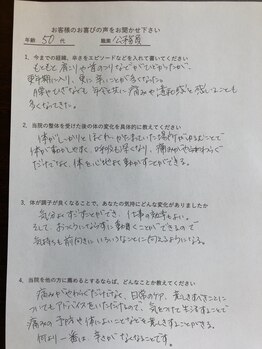 お客様のお喜びの声をお聞かせ下さい
年齢 50 代 職業 公務員
1、今までの経緯、辛さをエピソードなどを入れて書いてください
もともと肩こりや首のつりなどがひどかったが、
更年期に入り、更に辛いことが多くなった。
腰やひざなども年々共に痛みや違和感を感じることも
多くなってきた。
2、当院の整体を受けた後の体の変化を具体的に教えてください
体がしっかりとほぐれ、かたまっていた場所がゆるむことで
体が動かしやすく、呼吸も深くなり、痛みがやわらぐ
だけでなく、体を心地よく動かすことができる。
3、体が調子が良くなることで、あなたの気持にどんな変化がありましたか
気分よくすごすことができ、仕事の効率もよい。
そして、おっくうにならずに動くことができるので
気持ちも前向きにいろいろなことに向えるようになる。
4、当院を他の方に薦めるとするならば、どんなことか教えてください
痛みがやわらぐだけでなく、日常のケア、気をつけることに
ついてもアドバイスをいただけるので、気をつけて生活することで
痛みの予防や体によいことなどを意識することができる。
何より一番は、辛さがなくなることです。